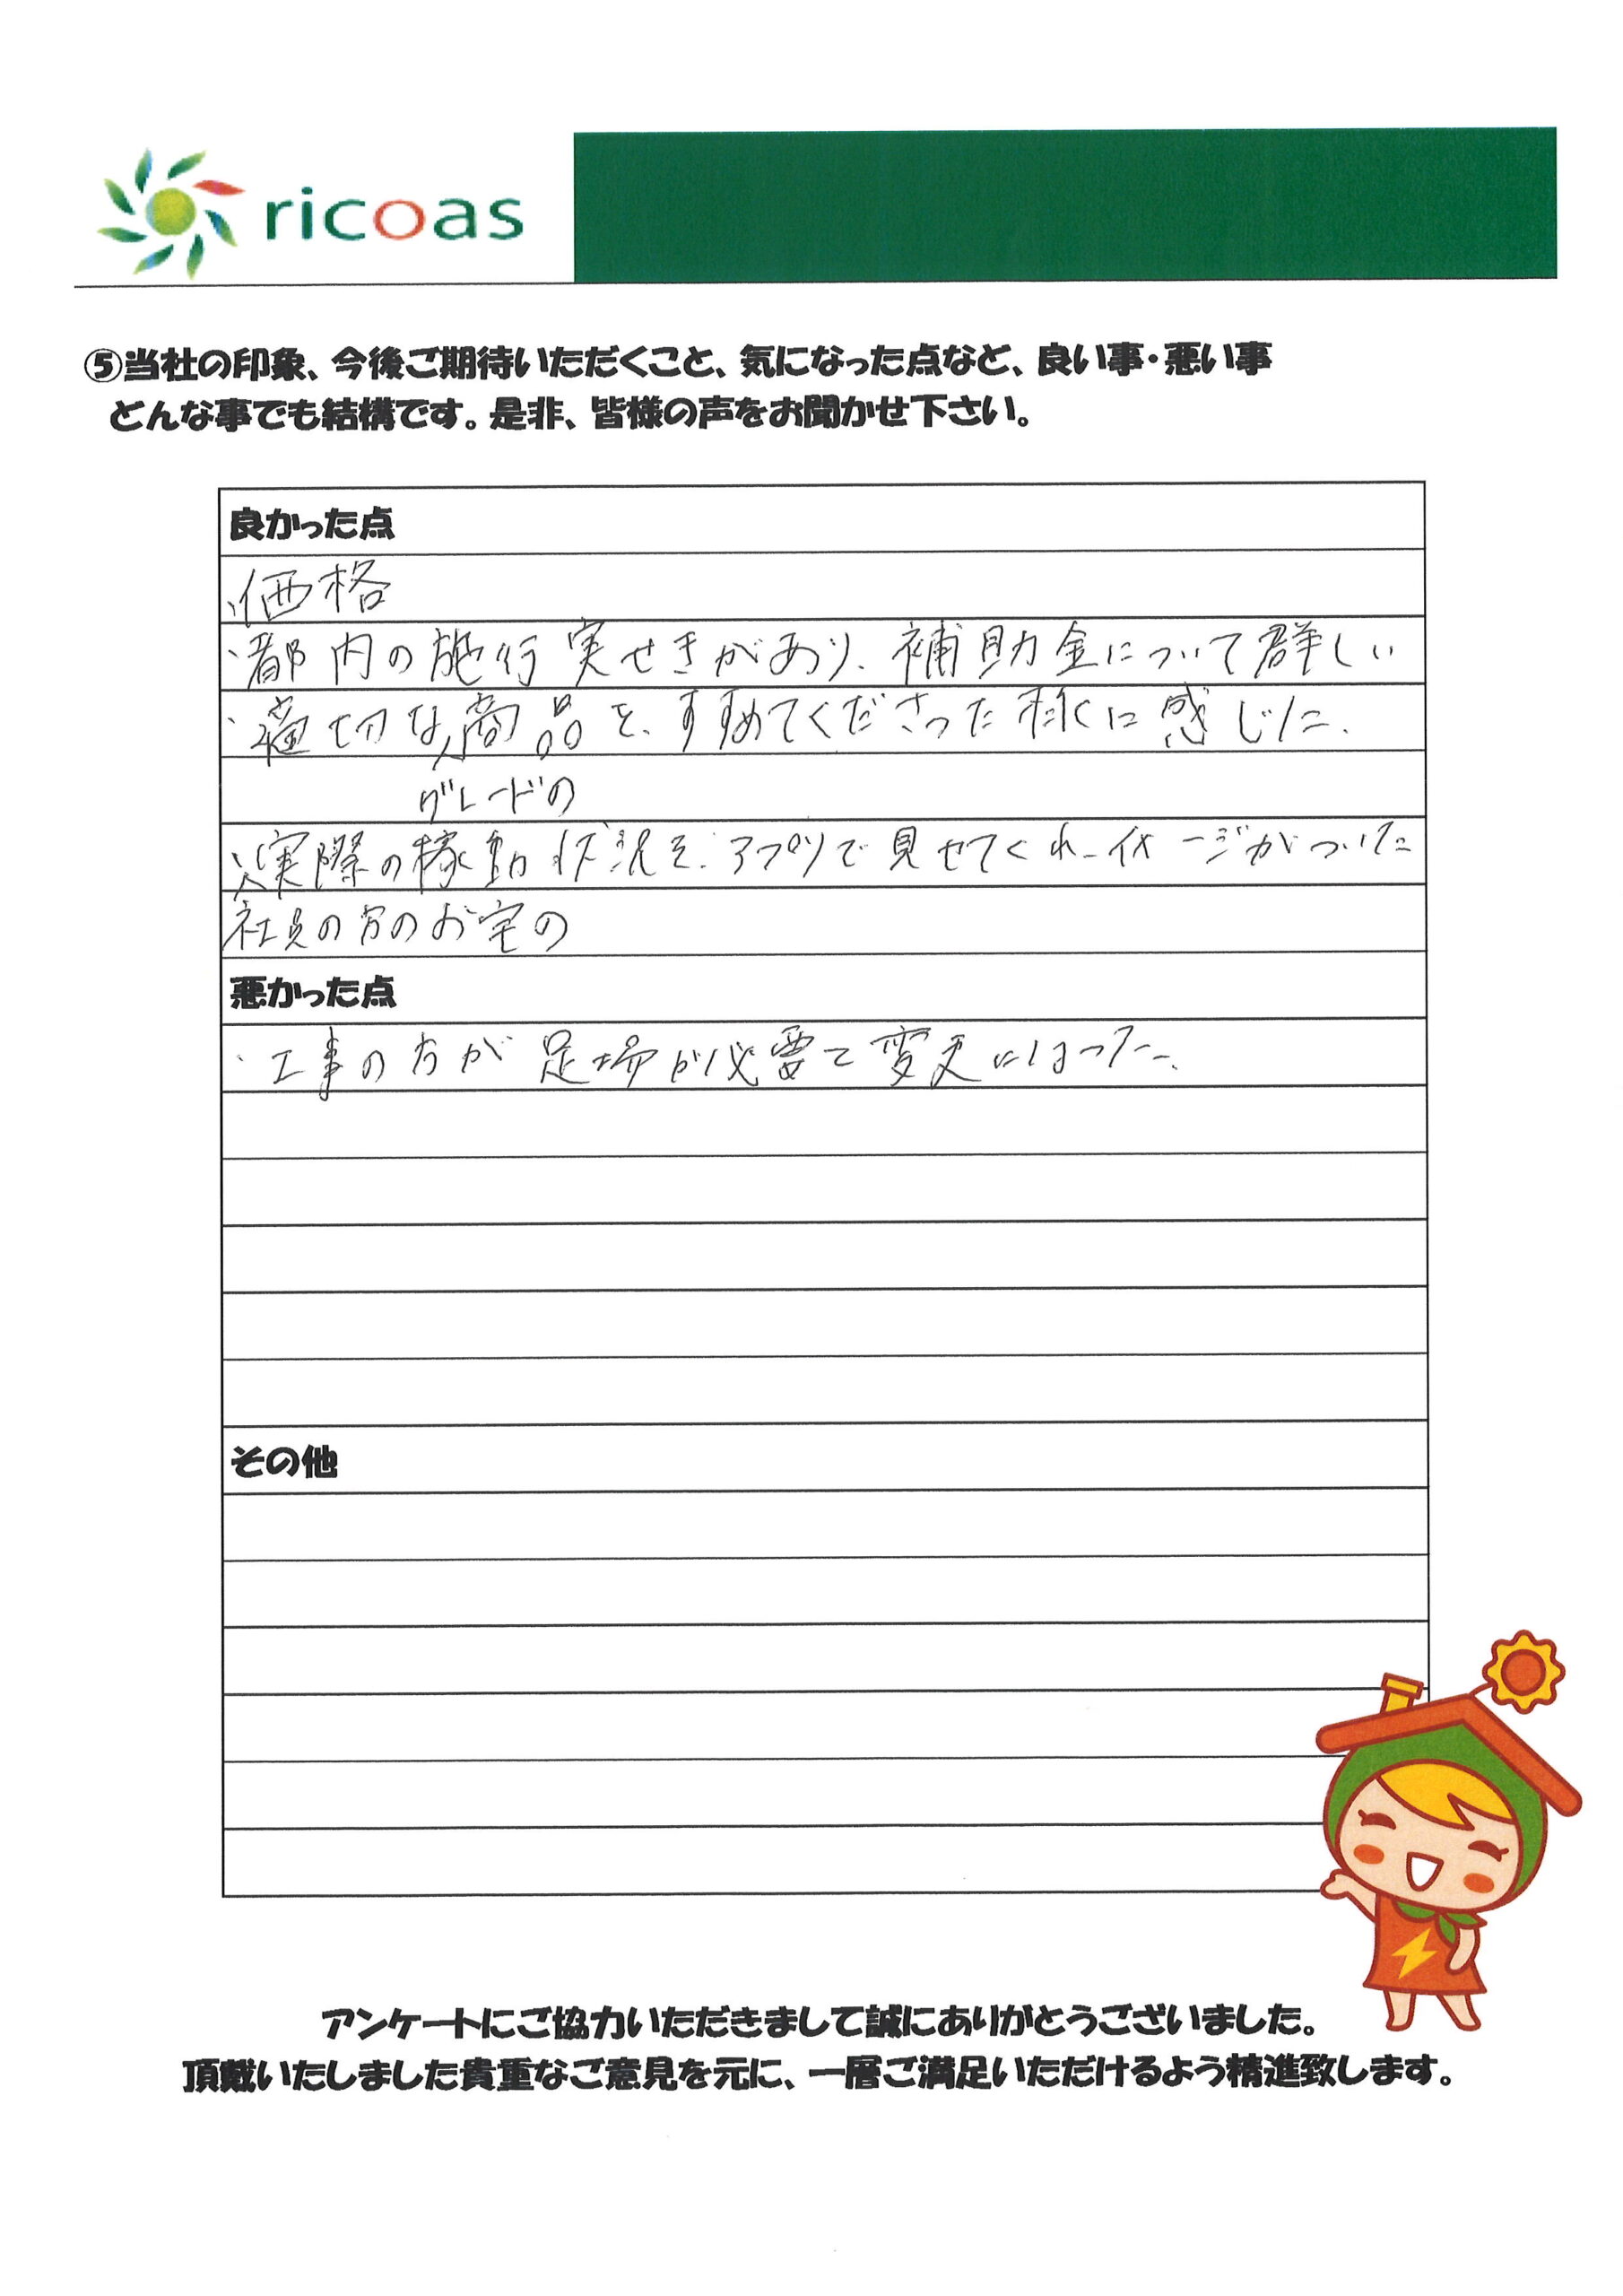 ricoas
⑤当社の印象、今後ご期待いただくこと、気になった点など、良い事・悪い事
どんな事でも結構です。是非、皆様の声をお聞かせ下さい。
良かった点
・価格
・都内の施行実せきがあり、補助金について群しい
・適切な商品を、すすめてくださった様に感じた。
グレードの
・実際の稼動状況を、アプリで見せてくれ、イメージがついた
社員の方のお宅の
悪かった点
・工事の方が足場が必要で変更になった。
その他
アンケートにご協力いただきまして誠にありがとうございました。
頂戴いたしました貴重なご意見を元に、一層ご満足いただけるよう精進致します。